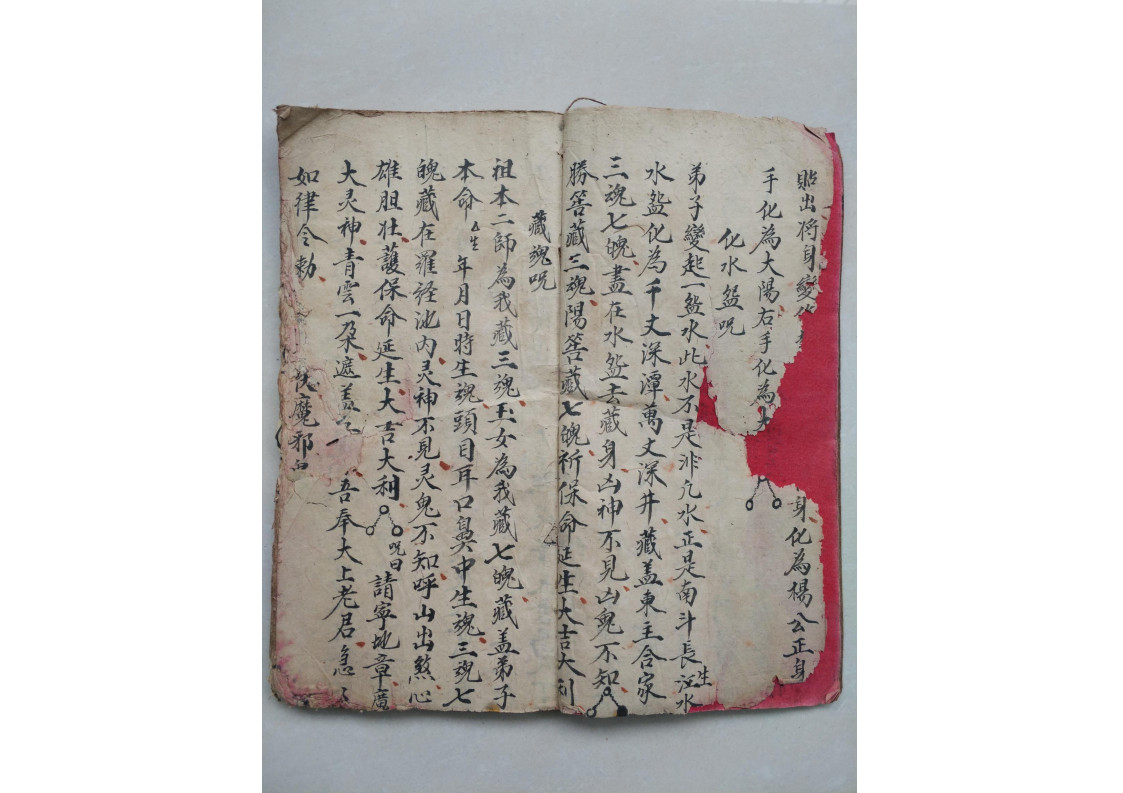 貼出将身變化
手化為大陽右手化為大 身化為楊公正身
化水盌呪
弟子變起一盌水此水不是非凢水正是南斗長生江水
水盌化為千丈深潭萬丈深井藏盖東主合家
三魂七魄盡在水盌去藏身凶神不見凶鬼不知
勝筶藏三魂陽筶藏七魄祈保命延生大吉大利
藏魂呪
祖本二師為我藏三魂玉女為我藏七魄藏盖弟子
本命厶生年月日時生魂頭目耳口鼻中生魂三魂七
魄藏在羅経池内灵神不見灵鬼不知呼山出煞心
雄胆壮護保命延生大吉大利 呪曰請寧地章廣
大灵神青雲一朶遮盖 吾奉大上老君急〻
如律令勅 伏魔邪